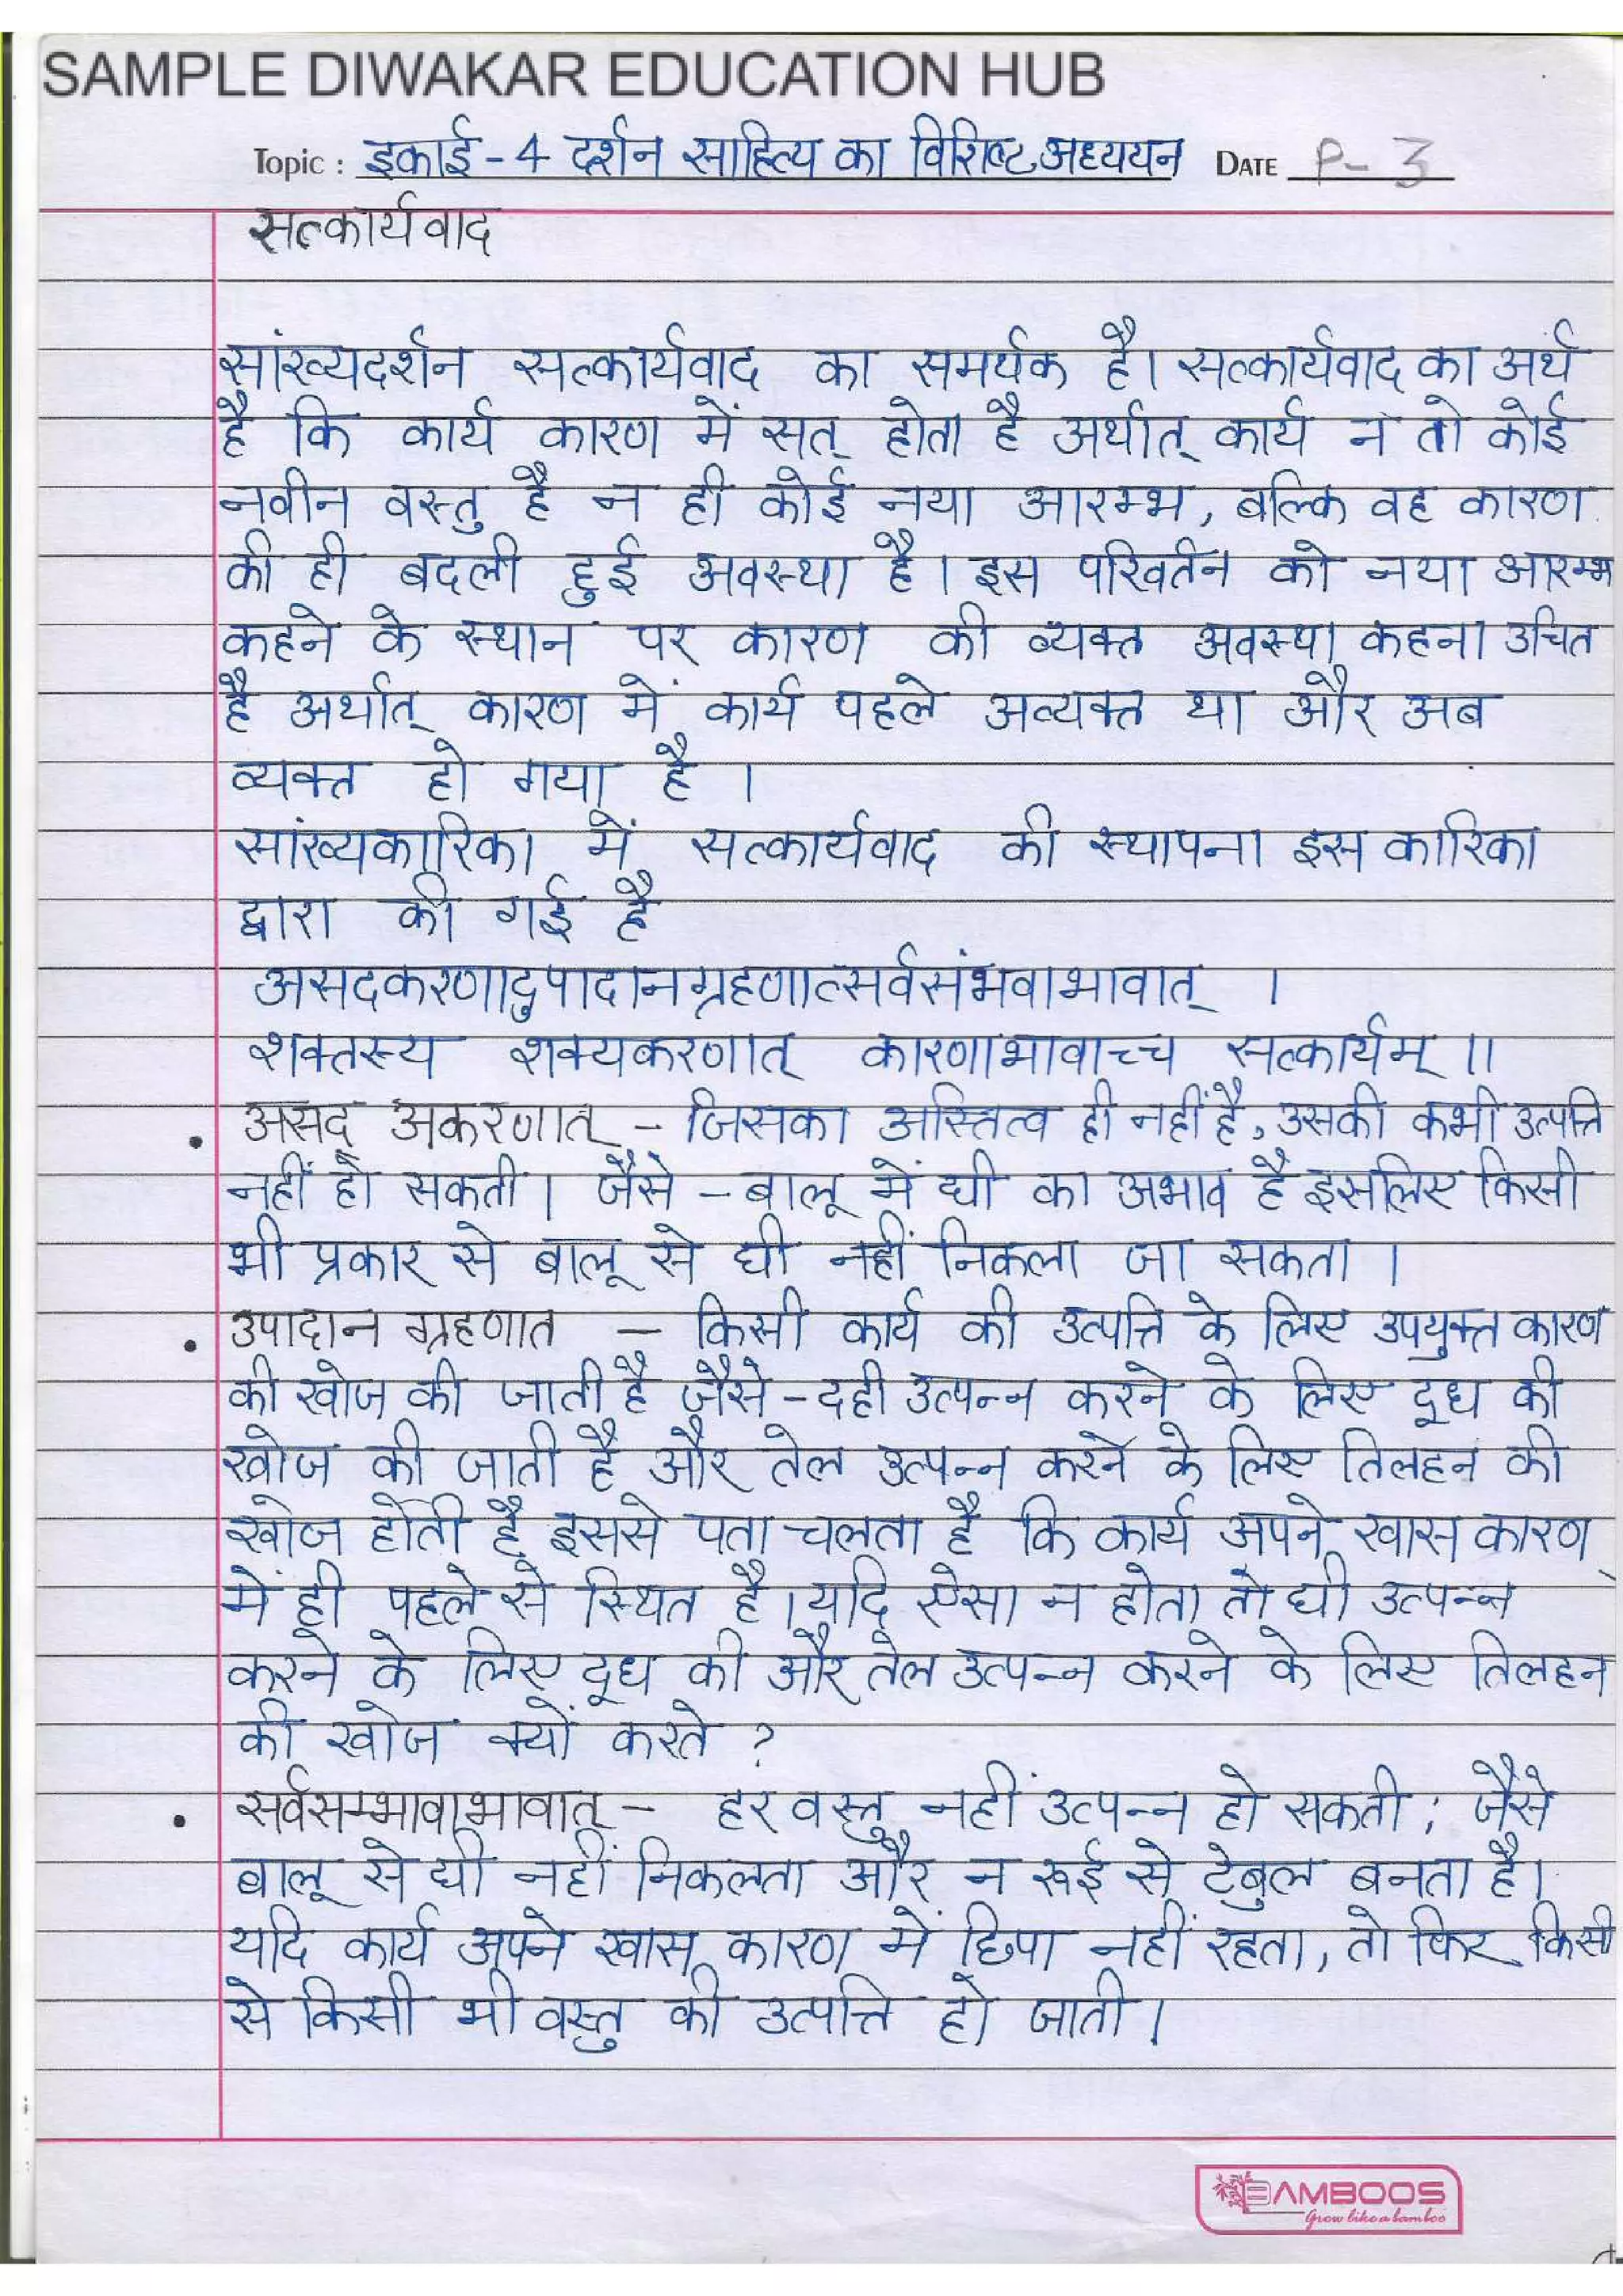 SAMPLE DIWAKAR EDUCATION HUB
Topic : इकाई - 4 दर्शन साहित्य का विशिष्ट अध्ययन DATE P - 3
सत्कार्यवाद
सांख्यदर्शन सत्कार्यवाद का समर्थक है। सत्कार्यवाद का अर्थ
है कि कार्य कारण में सत् होता है अर्थात् कार्य न तो कोई
नवीन वस्तु है न ही कोई नया आरम्भ, बल्कि वह कारण
की ही बदली हुई अवस्था है। इस परिवर्तन को नया आरम्भ
कहने के स्थान पर कारण की व्यक्त अवस्था कहना उचित
है अर्थात् कारण में कार्य पहले अव्यक्त था और अब
व्यक्त हो गया है ।
सांख्यकारिका में सत्कार्यवाद की स्थापना इस कारिका
द्वारा की गई है
असदकरणादुपादानग्रहणात्सर्वसंभवाभावात् ।
शक्तस्य शक्यकरणात् कारणाभावाच्च सत्कार्यम् ॥
• असद् अकरणात् - जिसका अस्तित्व ही नहीं है, उसकी कभी उत्पत्ति
नहीं हो सकती। जैसे - बालू में घी का अभाव है इसलिए किसी
भी प्रकार से बालू से घी नहीं निकला जा सकता ।
• उपादान ग्रहणात - किसी कार्य की उत्पत्ति के लिए उपयुक्त कारण
की खोज की जाती है जैसे - दही उत्पन्न करने के लिए दूध की
खोज की जाती है और तेल उत्पन्न करने के लिए तिलहन की
खोज होती है इससे पता चलता है कि कार्य अपने खास कारण
में ही पहले से स्थित है। यदि ऐसा न होता तो घी उत्पन्न
करने के लिए दूध की और तेल उत्पन्न करने के लिए तिलहन
की खोज क्यों करते ?
• सर्वसम्भावाभावात् - हर वस्तु नहीं उत्पन्न हो सकती; जैसे
बालू से घी नहीं निकलता और न रूई से टेबुल बनता है।
यदि कार्य अपने खास कारण में छिपा नहीं रहता, तो फिर किसी
से किसी भी वस्तु की उत्पत्ति हो जाती।
BAMBOOS
Grow like a bamboo